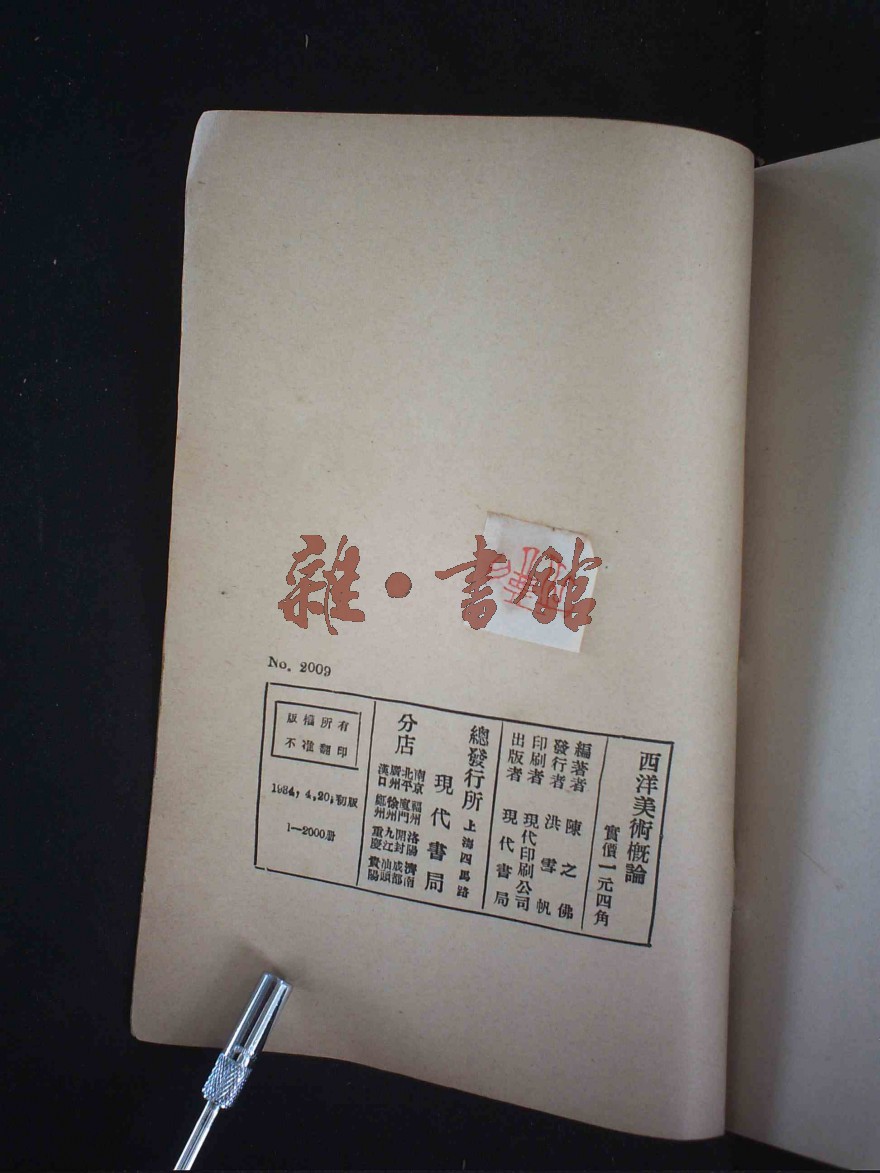 雜·書館
No. 2009
西洋美術概論
實價一元四角
編著者 陳之佛
發行者 洪雪帆
印刷者 現代印刷公司
出版者 現代書局
總發行所 上海四馬路
現代書局
分店
南京 福州 洛陽 濟南
北平 廈門 開封 成都
廣州 徐州 九江 汕頭
漢口 鄭州 重慶 貴陽
版權所有
不准翻印
1934,4,20,初版
1—2000册